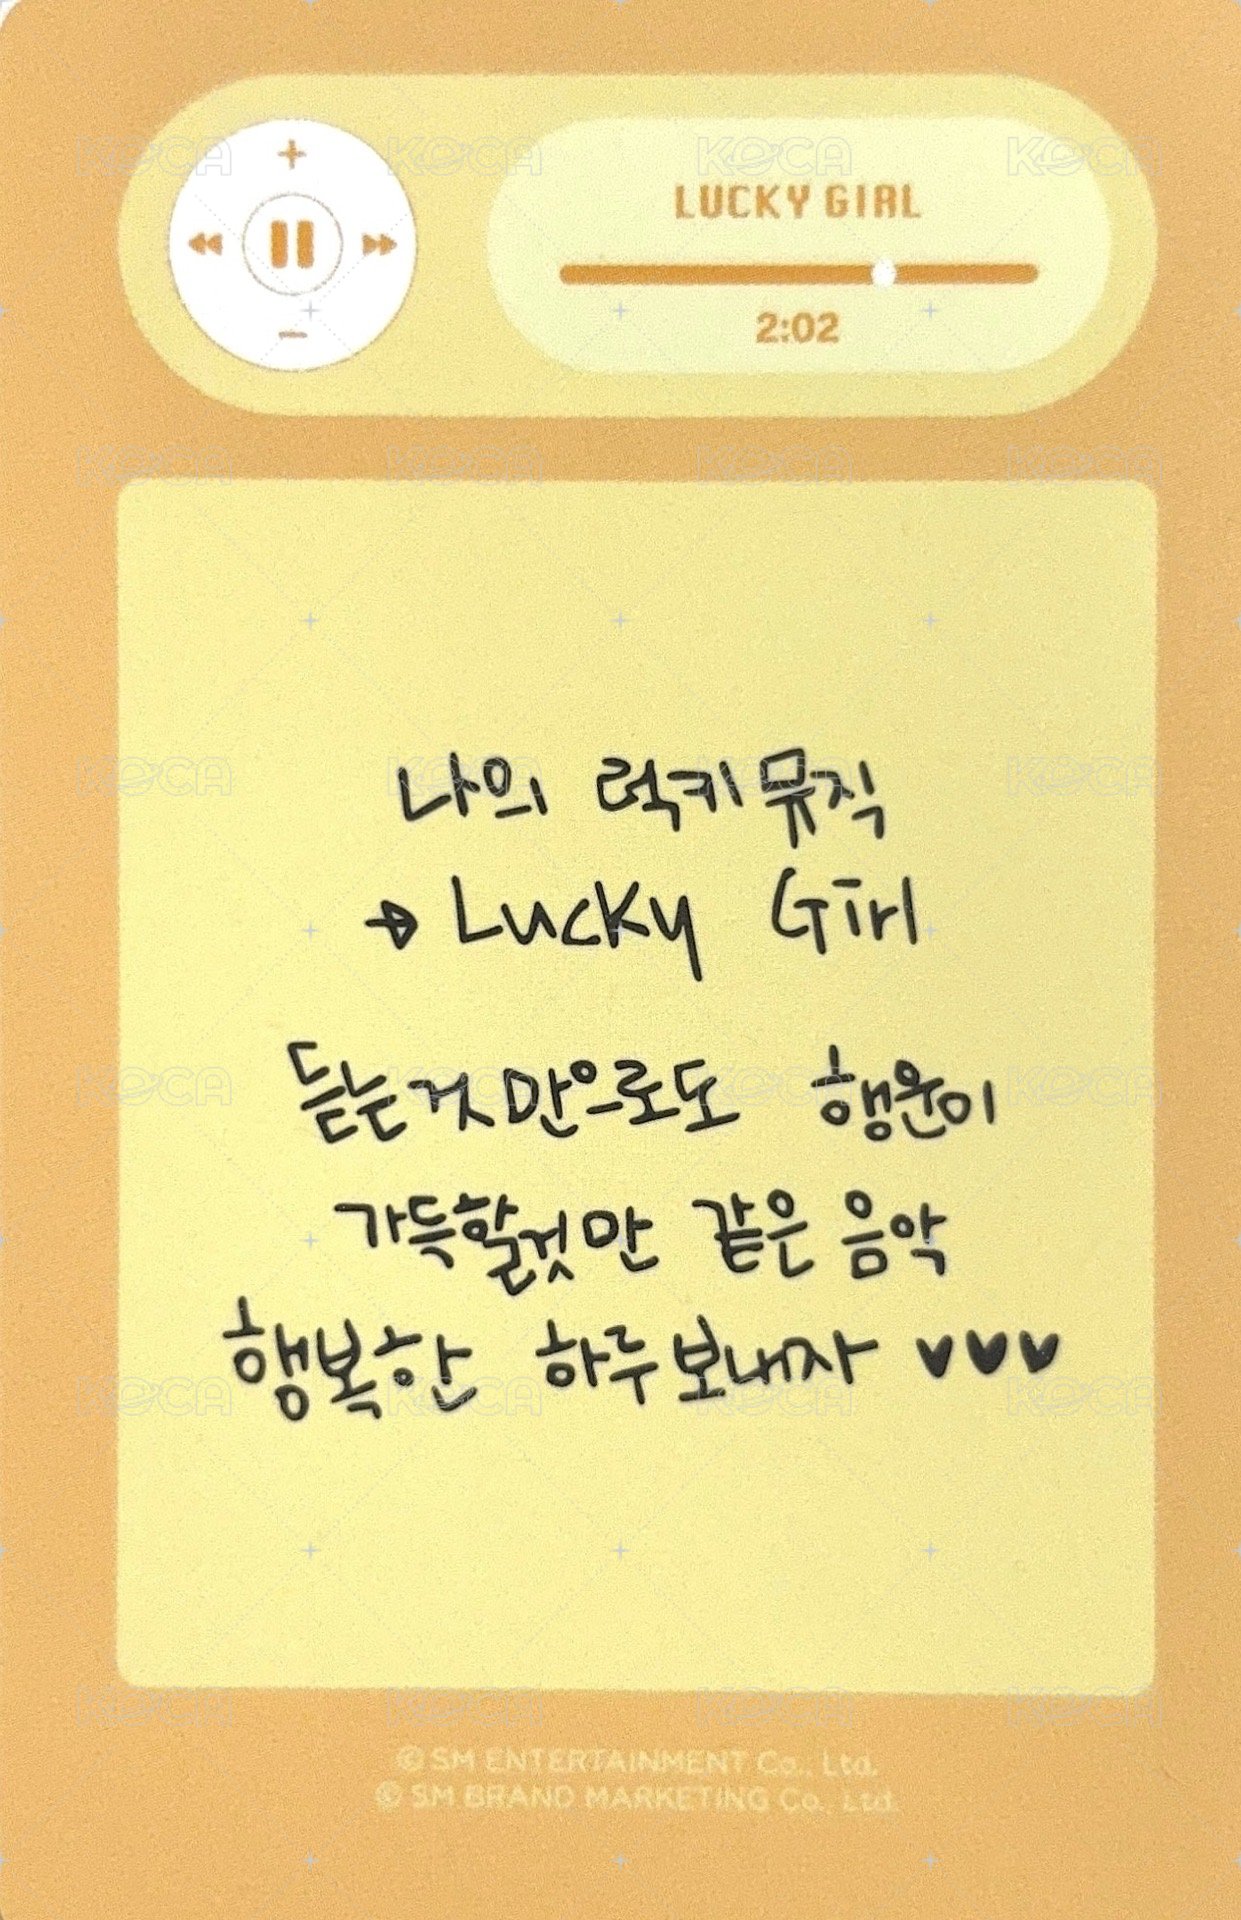 LUCKY GIRL
2:02
나의 럭키뮤직
→ Lucky Girl
듣는것만으로도 행운이
가득할것만 같은 음악
행복한 하루보내자 ♥♥♥
© SM ENTERTAINMENT Co., Ltd.
© SM BRAND MARKETING Co., Ltd.
KOCA